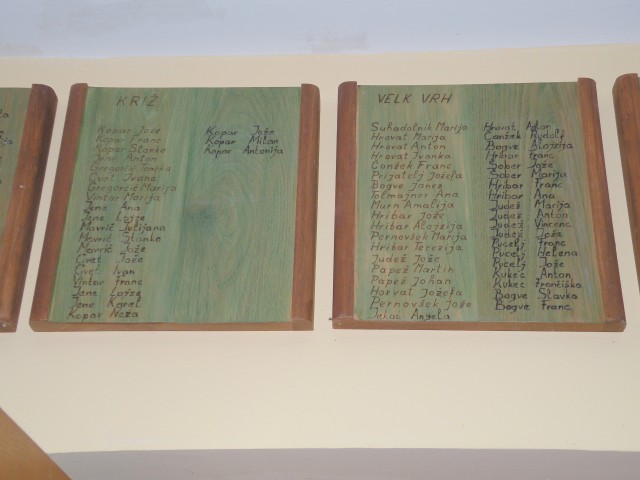 KRIŽ
Kopar Jože
Kopar Franc
Kopar Stanko
Jene Anton
Gregorčič
Cvet Ivana
Gregorčič Marija
Vintar Marija
Jene Ana
Jene Lojze
Mavrič Julijana
Mavrič Stanko
Mavrič Jože
Cvet Jože
Cvet Ivan
Vintar franc
Jene Lojze
Jene Karel
Kopar Neža
Kopar Jože
Kopar Milan
Kopar Antonija
VELK VRH
Suhadolnik Marija
Hrovat Marija
Hrovat Anton
Hrovat Ivanka
Conžek Franc
Prijatelj Jožefa
Bogve Janez
Tolmajner Ana
Murn Amalija
Hribar Jože
Hribar Alojzija
Pernovšek Marija
Hribar Terezija
Judež Jože
Papež Martin
Papež Johan
Horvat Jožefa
Pernovšek Jože
Angela
Hrovat Anton
Conžek Rudolf
Bogve Alojzija
Hribar franc
Sober Jože
Sober Marija
Hribar Franc
Hribar Ana
Judež Marija
Judež Anton
Judež Vincenc
Judež Jože
Pucelj Franc
Pucelj Helena
Pucelj Jože
Kukec Anton
Kukec Frančiška
Bogve Slavka
Bogve Franc